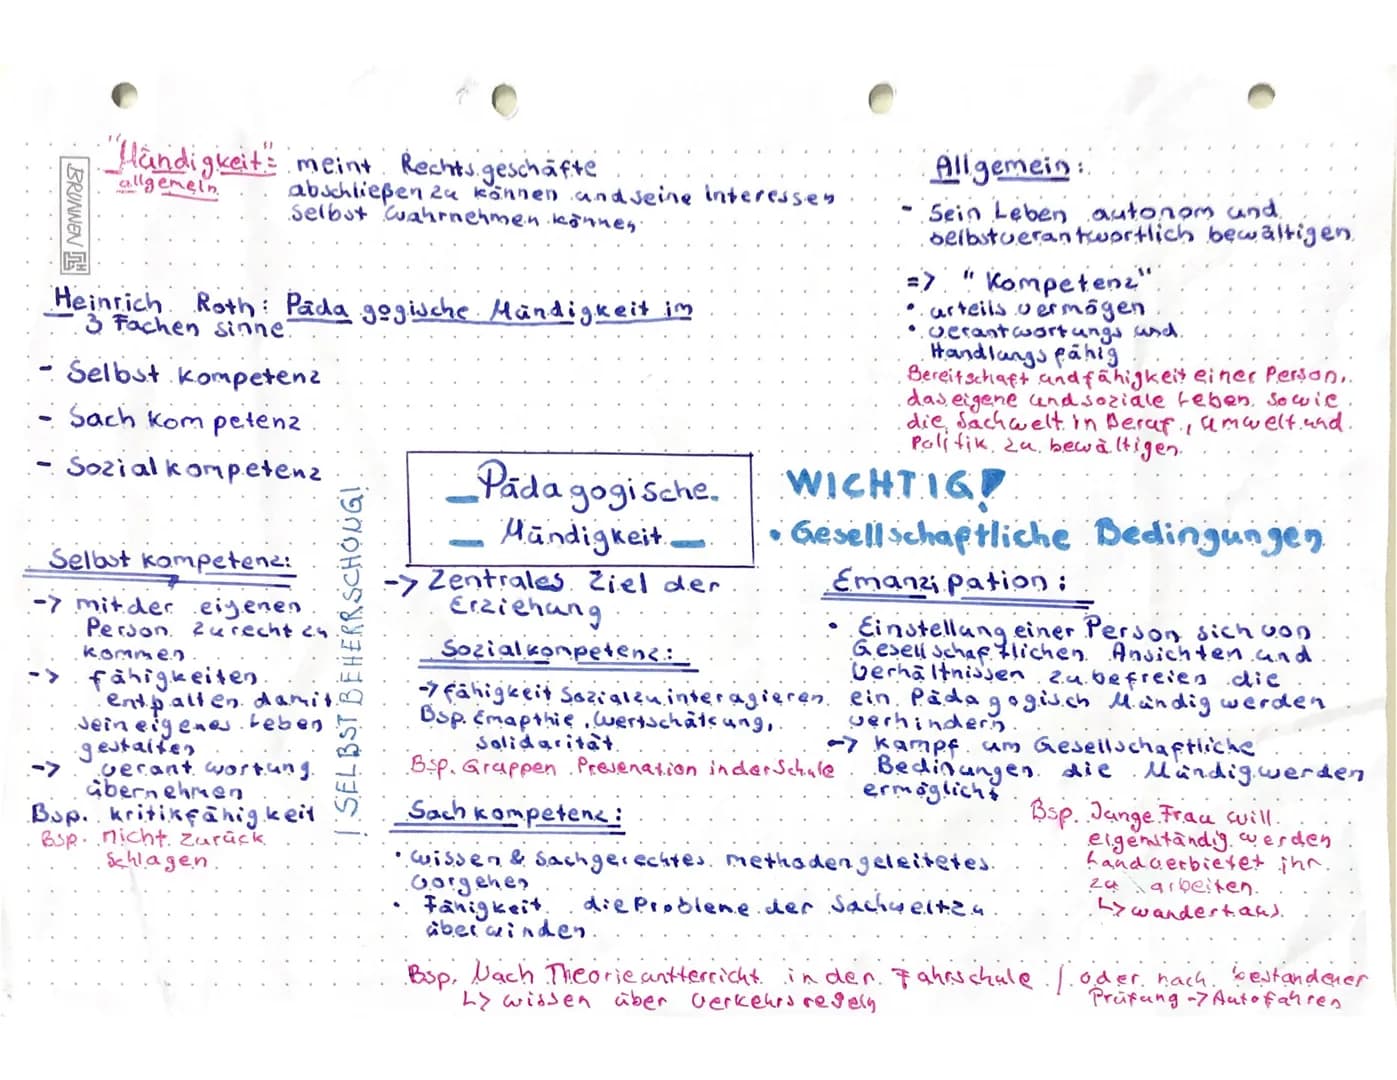 "Mündigkeit": meint Rechtsgeschäfte
allgemein
abschließen zu können und seine Interessen
selbst wahrnehmen können
BRUNNEN
Heinrich Roth: Pädagogische Mündigkeit im
3 Fachen sinne
- Selbst kompetenz
- Sach kompetenz
- Sozialkompetenz
Allgemein:
- Sein Leben autonom und
selbstverantwortlich bewältigen
=> "Kompetenz"
• urteils vermögen
• verantwortungs und
Handlungsfähig
Bereitschaft und fähigkeit einer Person,
das eigene und soziale Leben sowie
die Sachwelt in Beruf, umwelt und
Politik zu bewältigen
Pädagogische
Mündigkeit
-> Zentrales Ziel der
Erziehung
WICHTIG!
• Gesellschaftliche Bedingungen
Selbst kompetenz:
-> mit der eigenen
Person zurecht zu
kommen
-> fähigkeiten
entfalten damit
sein eigenes Leben
gestalten
-> verantwortung
übernehmen
Bsp. kritikfähigkeit
Bsp. nicht zurück
schlagen
! SELBSTBEHERRSCHUNG!
Sozialkompetenz:
-> fähigkeit Sozial zu interagieren
Bsp. Emapthie, Wertschätzung,
Solidarität
Bsp. Gruppen Presenation in der Schule
Sach kompetenz:
• wissen & Sachgerechtes methodengeleitetes
vorgehen
• Fähigkeit die Probleme der Sachwelt zu
überwinden
Bsp. Nach Theorieuntterricht in der Fahrschule / oder nach bestandener
Prüfung -> Autofahren
↳ wissen über Verkehrsregeln
Emanzipation:
• Einstellung einer Person sich von
Gesellschaftlichen Ansichten und
Verhältnissen zu befreien die
ein Pädagogisch Mündig werden
verhindern
-> kampf um Gesellschaftliche
Bedinungen die Mündig werden
ermöglicht
Bsp. Junge Frau will
eigenständig werden
Land verbietet ihr
zu arbeiten
↳ wandert aus